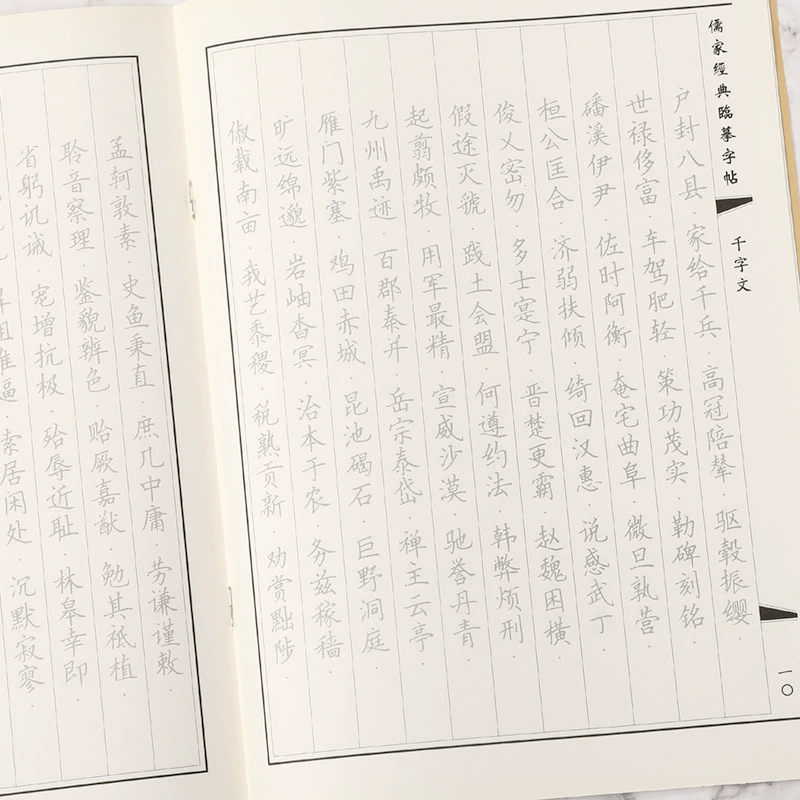 儒家經典臨摹字帖
千字文
一〇
户封八县·家给千兵·高冠陪辇·驱毂振缨·
世禄侈富·车驾肥轻·策功茂实·勒碑刻铭·
磻溪伊尹·佐时阿衡·奄宅曲阜·微旦孰营·
桓公匡合·济弱扶倾·绮回汉惠·说感武丁·
俊乂密勿·多士寔宁·晋楚更霸·赵魏困横·
假途灭虢·践土会盟·何遵约法·韩弊烦刑·
起翦颇牧·用军最精·宣威沙漠·驰誉丹青·
九州禹迹·百郡秦并·岳宗泰岱·禅主云亭·
雁门紫塞·鸡田赤城·昆池碣石·巨野洞庭·
旷远绵邈·岩岫杳冥·治本于农·务兹稼穑·
俶载南亩·我艺黍稷·税熟贡新·劝赏黜陟·
孟轲敦素·史鱼秉直·庶几中庸·劳谦谨敕·
聆音察理·鉴貌辨色·贻厥嘉猷·勉其祗植·
省躬讥诫·宠增抗极·殆辱近耻·林皋幸即·
组谁逼·索居闲处·沉默寂寥·